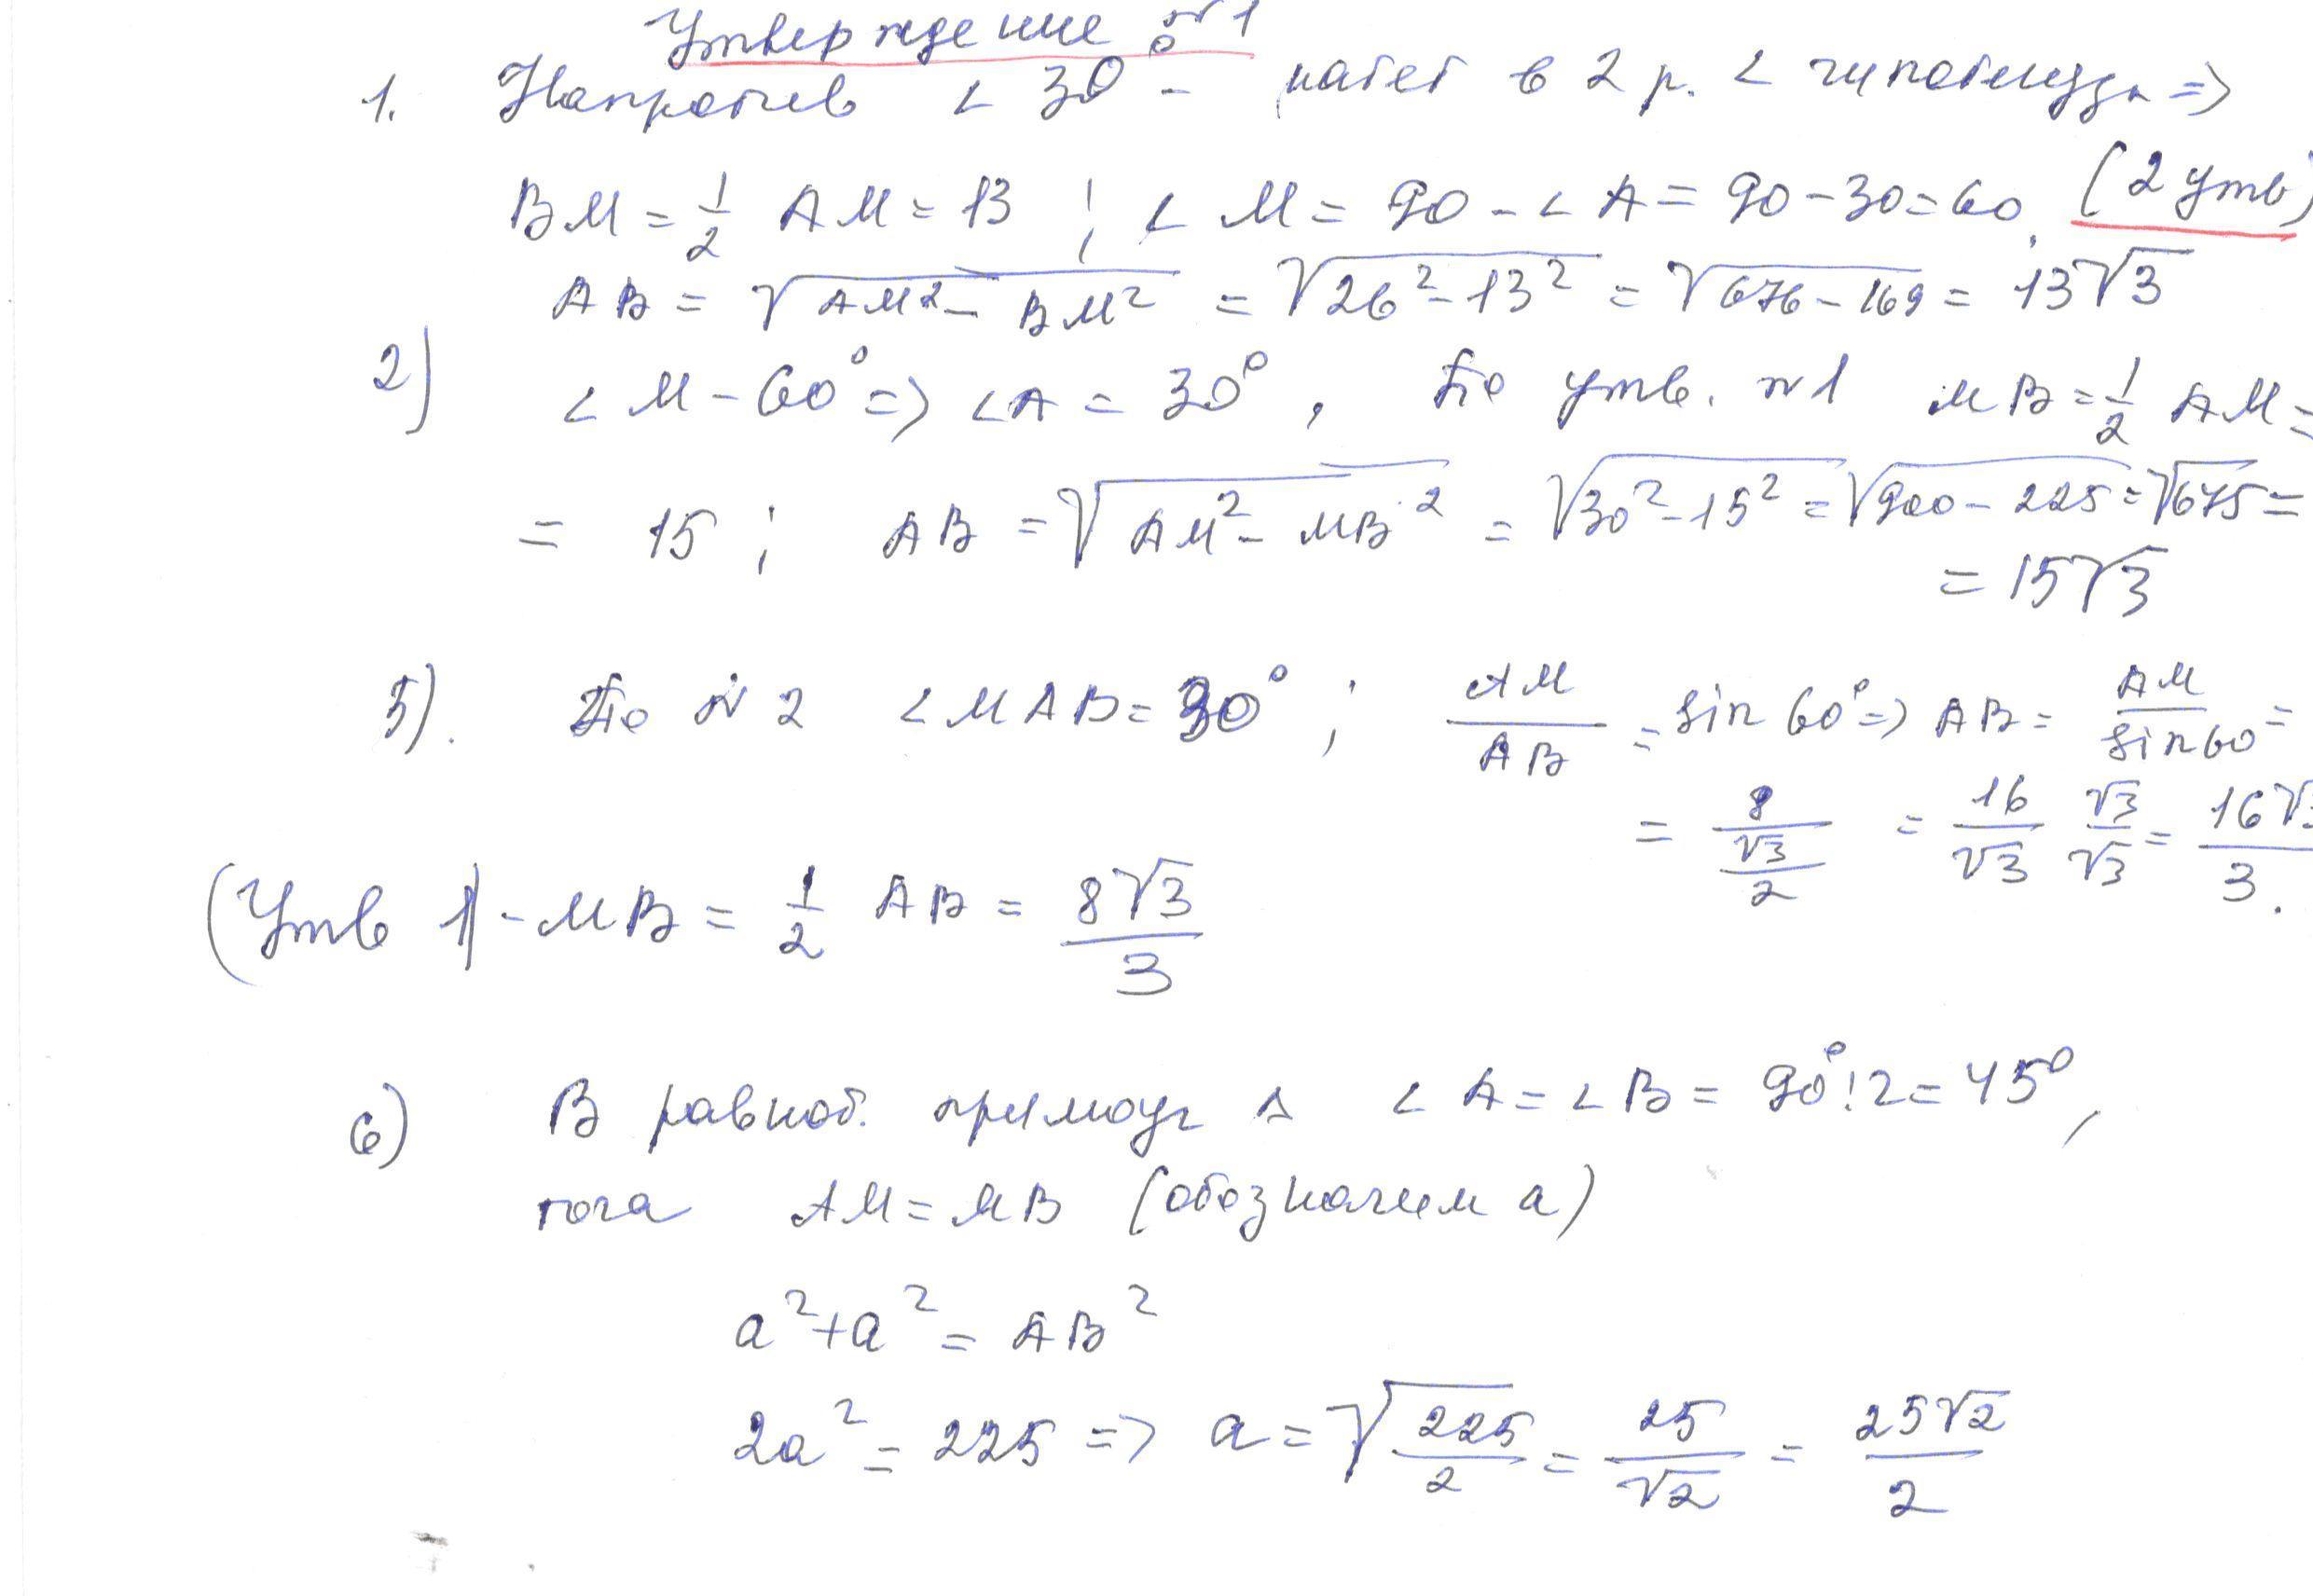 Утверждение №1
1. Напротив < 30° - катет в 2 р. < гипотенузы =>
BM = 1/2 AM = 13 ; < M = 90 - < A = 90 - 30 = 60. (2 утв)
AB = √(AM² - BM²) = √(26² - 13²) = √(676 - 169) = 13√3
2) < M - 60° => < A = 30°, По утв. №1 MB = 1/2 AM =
= 15 ; AB = √(AM² - MB²) = √(30² - 15²) = √(900 - 225) = √675 =
= 15√3
5). По №2 < MAB = 30° ; AM/AB = sin 60° => AB = AM/sin 60 =
= 8/(√3/2) = 16/√3 √3/√3 = 16√3/3.
(Утв 1) - MB = 1/2 AB = 8√3/3
6) В равноб. прямоуг △ < A = < B = 90° : 2 = 45°,
тога AM = MB (обозначим a)
a² + a² = AB²
2a² = 225 => a = √(225/2) = 25/√2 = 25√2/2